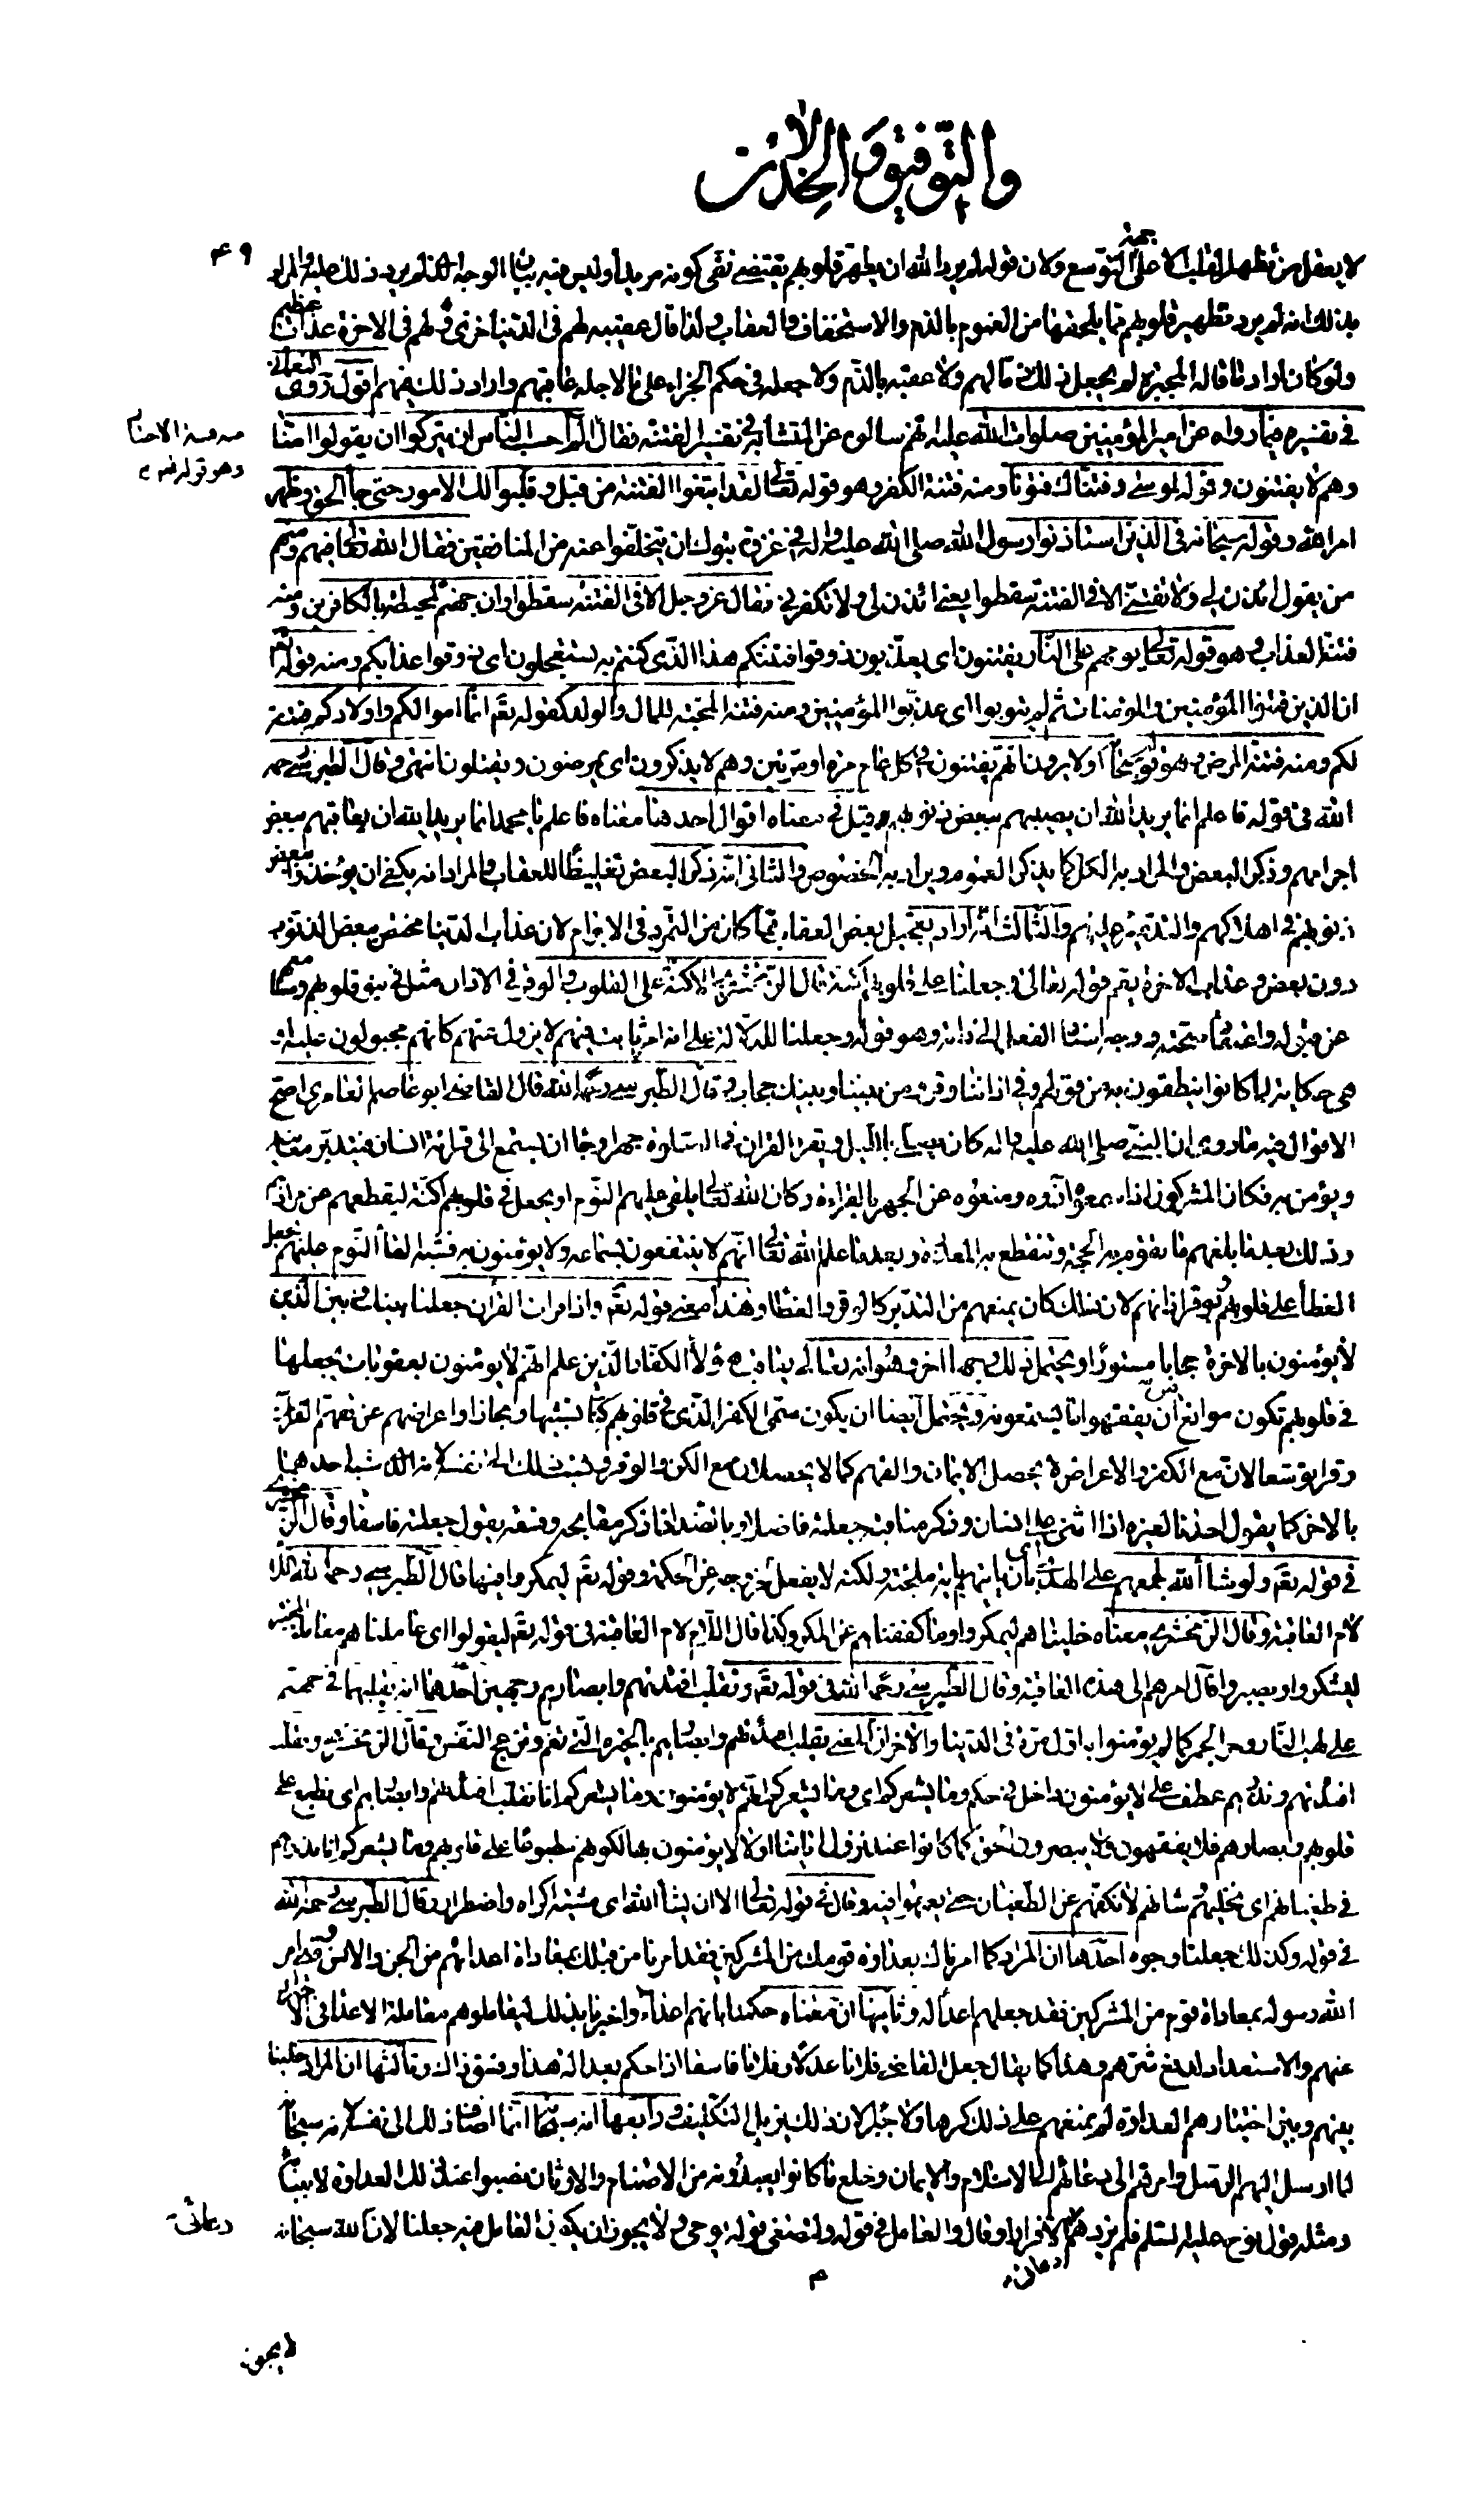 والتوفيق والخذلان
لا يعقل من تطهير القلب الا على جهة التوسع ولان قوله لم يرد الله ان يطهر قلوبهم يقتضي نفي كونه مريدا وليس فيه بيان الوجه الذي لم يرد ذلك عليه والمراد
۴۹
بذلك انه لم يرد تطهير قلوبهم مما يلحقها من الغموم بالذم والاستخفاف والعقاب ولذا قال عقيبه لهم في الدنيا خزي ولهم في الاخرة عذاب عظيم
ولو كان اراد ما قاله المجبرة لم يجعل ذلك ذما لهم ولا عقبه بالذم ولا جعله في حكم الجزاء على ما لاجله عاقبهم واراد ذلك فيهم اقول روى النعماني
في تفسيره فيما رواه عن امير المؤمنين صلوات الله عليه انهم سالوه عن المتشابه في تفسير الفتنة فقال الم احسب الناس ان يتركوا ان يقولوا امنا
منه فتنة الاختبار
وهو قوله
وهم لا يفتنون وقوله لموسى وفتناك فتونا ومنه فتنة الكفر وهو قوله تعالى لقد ابتغوا الفتنة من قبل وقلبوا لك الامور حتى جاء الحق وظهر
امر الله وقوله سبحانه في الذين استاذنوا رسول الله صلى الله عليه واله في غزوة تبوك ان يتخلفوا عنه من المنافقين فقال الله تعالى فيهم ومنهم
من يقول ائذن لي ولا تفتني الا في الفتنة سقطوا يعني ائذن لي ولا تكفرني فقال عز وجل الا في الفتنة سقطوا وان جهنم لمحيطة بالكافرين ومنه
فتنة العذاب وهو قوله تعالى يوم هم على النار يفتنون اي يعذبون ذوقوا فتنتكم هذا الذي كنتم به تستعجلون اي ذوقوا عذابكم ومنه قوله
ان الذين فتنوا المؤمنين والمؤمنات ثم لم يتوبوا اي عذبوا المؤمنين ومنه فتنة المحبة للمال والولد كقوله تعالى انما اموالكم واولادكم فتنة
لكم ومنه فتنة المرض وهو قوله سبحانه اولا يرون انهم يفتنون في كل عام مرة او مرتين وهم لا يذكرون اي يمرضون ويقتلون انتهى وقال الطبرسي رحمه
الله في قوله فاعلم انما يريد الله ان يصيبهم ببعض ذنوبهم قيل في معناه اقوال احدها معناه فاعلم يا محمد انما يريد الله ان يعاقبهم ببعض
اجرامهم وذكر البعض والمراد به الكل كما يذكر العموم ويراد به الخصوص والثاني انه ذكر البعض تغليظا للعقاب والمراد انه يكفي ان يؤخذوا ببعض
ذنوبهم في اهلاكهم والتدمير عليهم والثالث انه اراد تعجيل بعض العقاب مما كان من التمرد في الاجرام لان عذاب الدنيا مختص ببعض الذنوب
دون بعض وعذاب الاخرة يعم قوله تعالى وجعلنا على قلوبهم اكنة قال الزمخشري الاكنة على القلوب والوقر في الاذان مثل في نبو قلوبهم ومسامعهم
عن قبوله واعتقاد صحته ووجه اسناد الفعل الى ذاته وهو قوله وجعلنا للدلالة على انه امر ثابت فيهم لا يزول عنهم كانهم مجبولون عليه او
هي حكاية لما كانوا ينطقون به من قولهم وفي اذاننا وقر ومن بيننا وبينك حجاب وقال الطبرسي رحمه الله قال القاضي ابو عاصم العامري اصح
الاقوال فيه ما روي ان النبي صلى الله عليه واله كان يصلي بالليل ويقرأ القران في الصلوة جهرا رجاء ان يستمع الى قرائته انسان فيتدبر معانيه
ويؤمن به فكان المشركون اذا سمعوه اذوه ومنعوه عن الجهر بالقراءة وكان الله تعالى يلقي عليهم النوم او يجعل في قلوبهم اكنة ليقطعهم عن مرادهم
وذلك بعد ما بلغهم ما تقوم به الحجة وتنقطع به المعذرة وبعد ما علم الله تعالى انهم لا ينتفعون بسماعه ولا يؤمنون به فشبه القاء النوم عليهم بجعل
الغطاء على قلوبهم وبوقر اذانهم لان ذلك كان يمنعهم من التدبر كالوقر والغطاء وهذا معنى قوله تعالى واذا قرأت القران جعلنا بينك وبين الذين
لا يؤمنون بالاخرة حجابا مستورا ويحتمل ذلك وجها اخر وهو انه تعالى يعاقب هؤلاء الكفار الذين علم انهم لا يؤمنون بعقوبات يجعلها
في قلوبهم تكون موانع من ان يفقهوا ما يستمعونه ويحتمل ايضا ان يكون سمى الكفر الذي في قلوبهم كنا تشبيها ومجازا واعراضهم عن تفهم القران
وقرا توسعا لان مع الكفر والاعراض لا يحصل الايمان والفهم كما لا يحصلان مع الكن والوقر ونسب ذلك الى نفسه لانه الذي شبه احدهما
بالاخر كما يقول احدنا لغيره اذا اثنى على انسان وذكر مناقبه جعلته فاضلا وبالضد اذا ذكر مقابحه وفسقه يقول جعلته فاسقا وقال الزمخشري
في قوله تعالى ولو شاء الله لجمعهم على الهدى بان ياتيهم باية ملجئة ولكنه لا يفعل لخروجه عن الحكمة وقوله تعالى ليمكروا فيها قال الطبرسي رحمه الله اللام
لام العاقبة وقال الزمخشري معناه خليناهم ليمكروا وما كففناهم عن المكر وكذا قال اللام لام العاقبة في قوله تعالى ليقولوا اي عاملناهم معاملة المختبر
ليشكروا او يصبروا فآل امرهم الى هذه العاقبة وقال الطبرسي رحمه الله في قوله تعالى ونقلب افئدتهم وابصارهم وجهين احدهما انه يقلبهما في جهنم
على لهب النار وحر الجمر كما لم يؤمنوا به اول مرة في الدنيا والاخر ان المعنى نقلب افئدتهم وابصارهم بالحيرة التي تغم وتزعج النفس وقال الزمخشري ونقلب
افئدتهم ونذرهم عطف على لا يؤمنون داخل في حكم وما يشعركم اي وما يشعركم انهم لا يؤمنون وما يشعركم انا نقلب افئدتهم وابصارهم اي نطبع على
قلوبهم وابصارهم فلا يفقهون ولا يبصرون الحق كما كانوا عند نزول اياتنا اولا لا يؤمنون بها لكونهم مطبوعا على قلوبهم وما يشعركم انا نذرهم
في طغيانهم اي نخليهم وشانهم لا نكفهم عن الطغيان حتى يعمهوا فيه وقال في قوله تعالى الا ان يشاء الله اي مشيئة اكراه واضطرار وقال الطبرسي رحمه الله
في قوله وكذلك جعلنا وجوه احدها ان المراد كما امرناك بعداوة قومك من المشركين فقد امرنا من قبلك بمعاداة اعدائهم من الجن والانس ومتى امر
الله رسوله بمعاداة قوم من المشركين فقد جعلهم اعداء له وثانيها ان معناه حكمنا بانهم اعداء واخبرنا بذلك ليعاملوهم معاملة الاعداء في الاحتراز
عنهم والاستعداد لدفع شرهم وهذا كما يقال جعل القاضي فلانا عدلا وفلانا فاسقا اذا حكم بعدالة هذا وفسق ذاك وثالثها ان المراد خلينا
بينهم وبين اختيارهم العداوة لم نمنعهم على ذلك كرها ولا جبرا لان ذلك يزيل التكليف ورابعها انه سبحانه انما اضاف ذلك الى نفسه لانه سبحانه
لما ارسل اليهم الرسل وامرهم الى دعائهم الى الاسلام والايمان وخلع ما كانوا يعبدونه من الاصنام والاوثان نصبوا عند ذلك العداوة لانبيائه
ومثله قول نوح عليه السلم فلم يزدهم دعائي الا فرارا وقال والعامل في قوله ولتصغى قوله يوحي ولا يجوز ان يكون العامل فيه جعلنا لان الله سبحانه
دعائي
م
لا يجوز